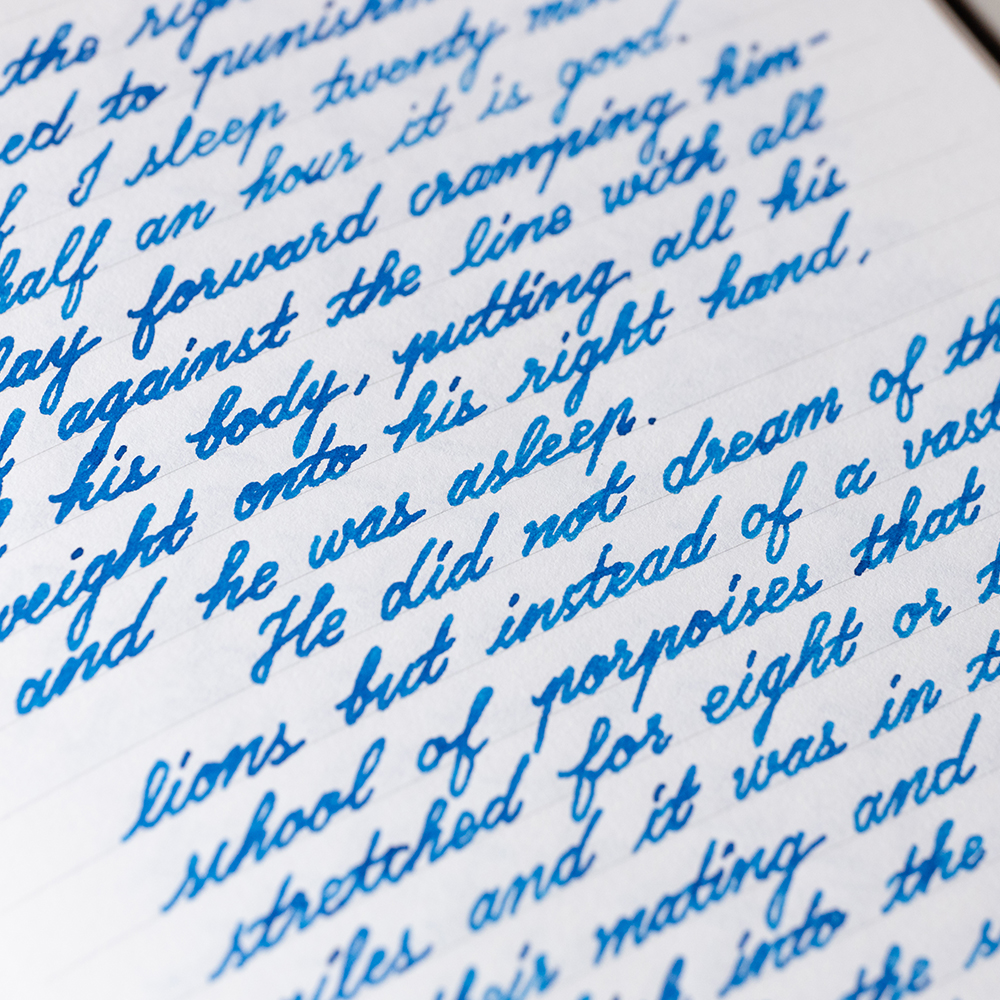 the
ed to
I sleep twenty
half an hour it is good.
lay forward cramping him-
against the line with all
his body, putting all his
weight onto his right hand,
and he was asleep.
He did not dream of
lions but instead of a vast
school of porpoises that
stretched for eight or
and it was in
mating and
into the
the